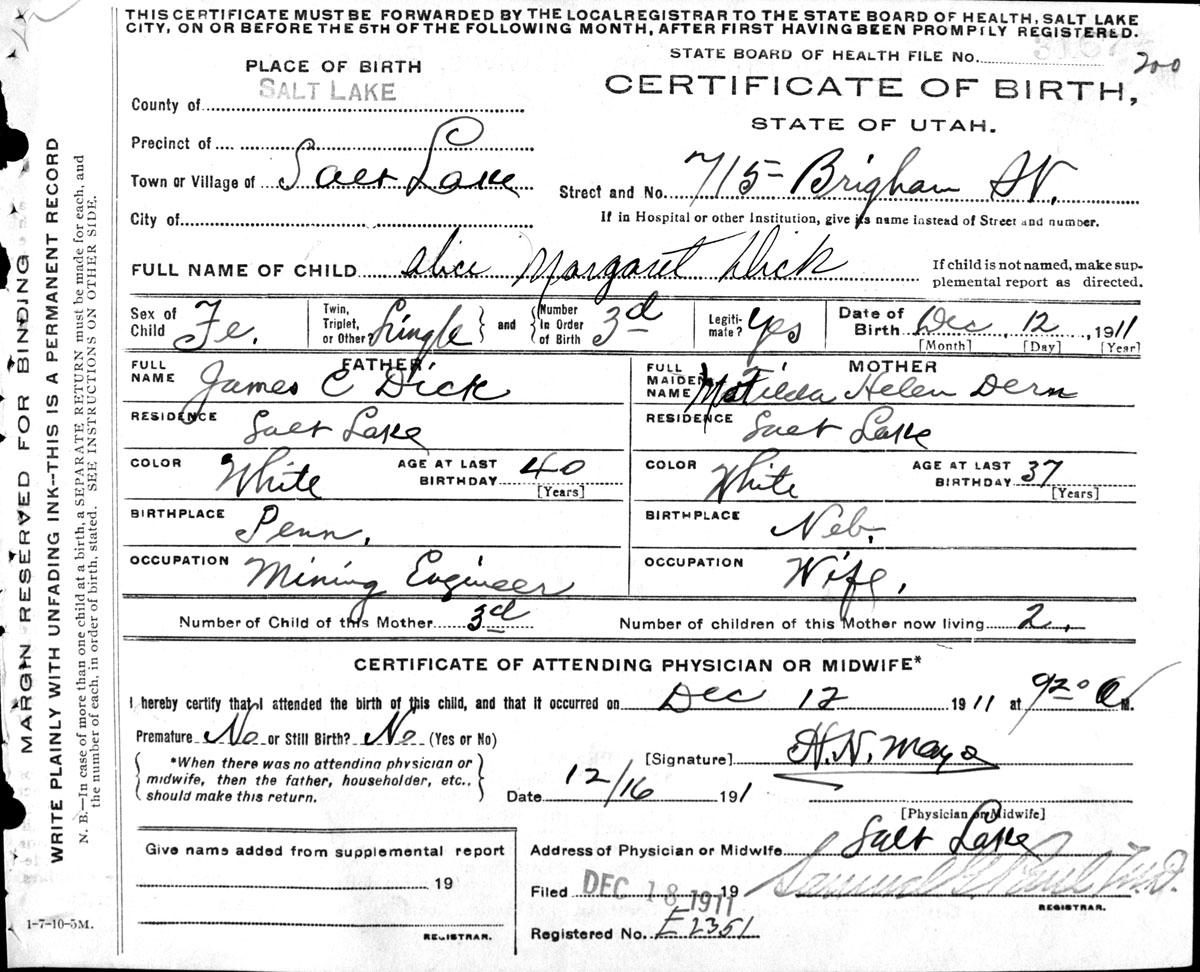 THIS CERTIFICATE MUST BE FORWARDED BY THE LOCAL REGISTRAR TO THE STATE BOARD OF HEALTH, SALT LAKE
CITY, ON OR BEFORE THE 5TH OF THE FOLLOWING MONTH, AFTER FIRST HAVING BEEN PROMPILY REGISTERED.
STATE BOARD OF HEALTH FILE No.
200
PLACE OF BIRTH
CERTIFICATE OF BIRTH,
County of SALT LAKE
STATE OF UTAH.
Precinct of
Town or Village of Salt Lake
Street and No. 715- Brigham St.
City of
If in Hospital or other Institution, give its name instead of Street and number.
FULL NAME OF CHILD Alice Margaret Dick
If child is not named, make sup-
plemental report as directed.
Sex of Child Fe.
Twin, Triplet, or Other? Single
and
Number in Order of Birth 3d
Legiti-mate? Yes
Date of Birth Dec, 12, 1911
[Month] [Day] [Year]
FATHER
FULL NAME James C Dick
MOTHER
FULL MAIDEN NAME Matilda Helen Dern
RESIDENCE Salt Lake
RESIDENCE Salt Lake
COLOR White AGE AT LAST BIRTHDAY 40 [Years]
COLOR White AGE AT LAST BIRTHDAY 37 [Years]
BIRTHPLACE Penn.
BIRTHPLACE Neb.
OCCUPATION Mining Engineer
OCCUPATION Wife.
Number of Child of this Mother 3d
Number of children of this Mother now living 2.
CERTIFICATE OF ATTENDING PHYSICIAN OR MIDWIFE*
I hereby certify that I attended the birth of this child, and that it occurred on Dec 12 1911 at 920 A M.
Premature No or Still Birth? No (Yes or No)
*When there was no attending physician or
midwife, then the father, householder, etc.,
should make this return.
[Signature] H. N. Mayo
Date 12/16 191
[Physician or Midwife]
Give name added from supplemental report
19
REGISTRAR.
Address of Physician or Midwife Salt Lake
Filed DEC 18 1911 19 Samuel G Paul M.D.
REGISTRAR.
Registered No. E2351
1-7-10-5M.
MARGIN RESERVED FOR BINDING
WRITE PLAINLY WITH UNFADING INK--THIS IS A PERMANENT RECORD
N. B.—In case of more than one child at a birth, a SEPARATE RETURN must be made for each, and
the number of each, in order of birth, stated. SEE INSTRUCTIONS ON OTHER SIDE.